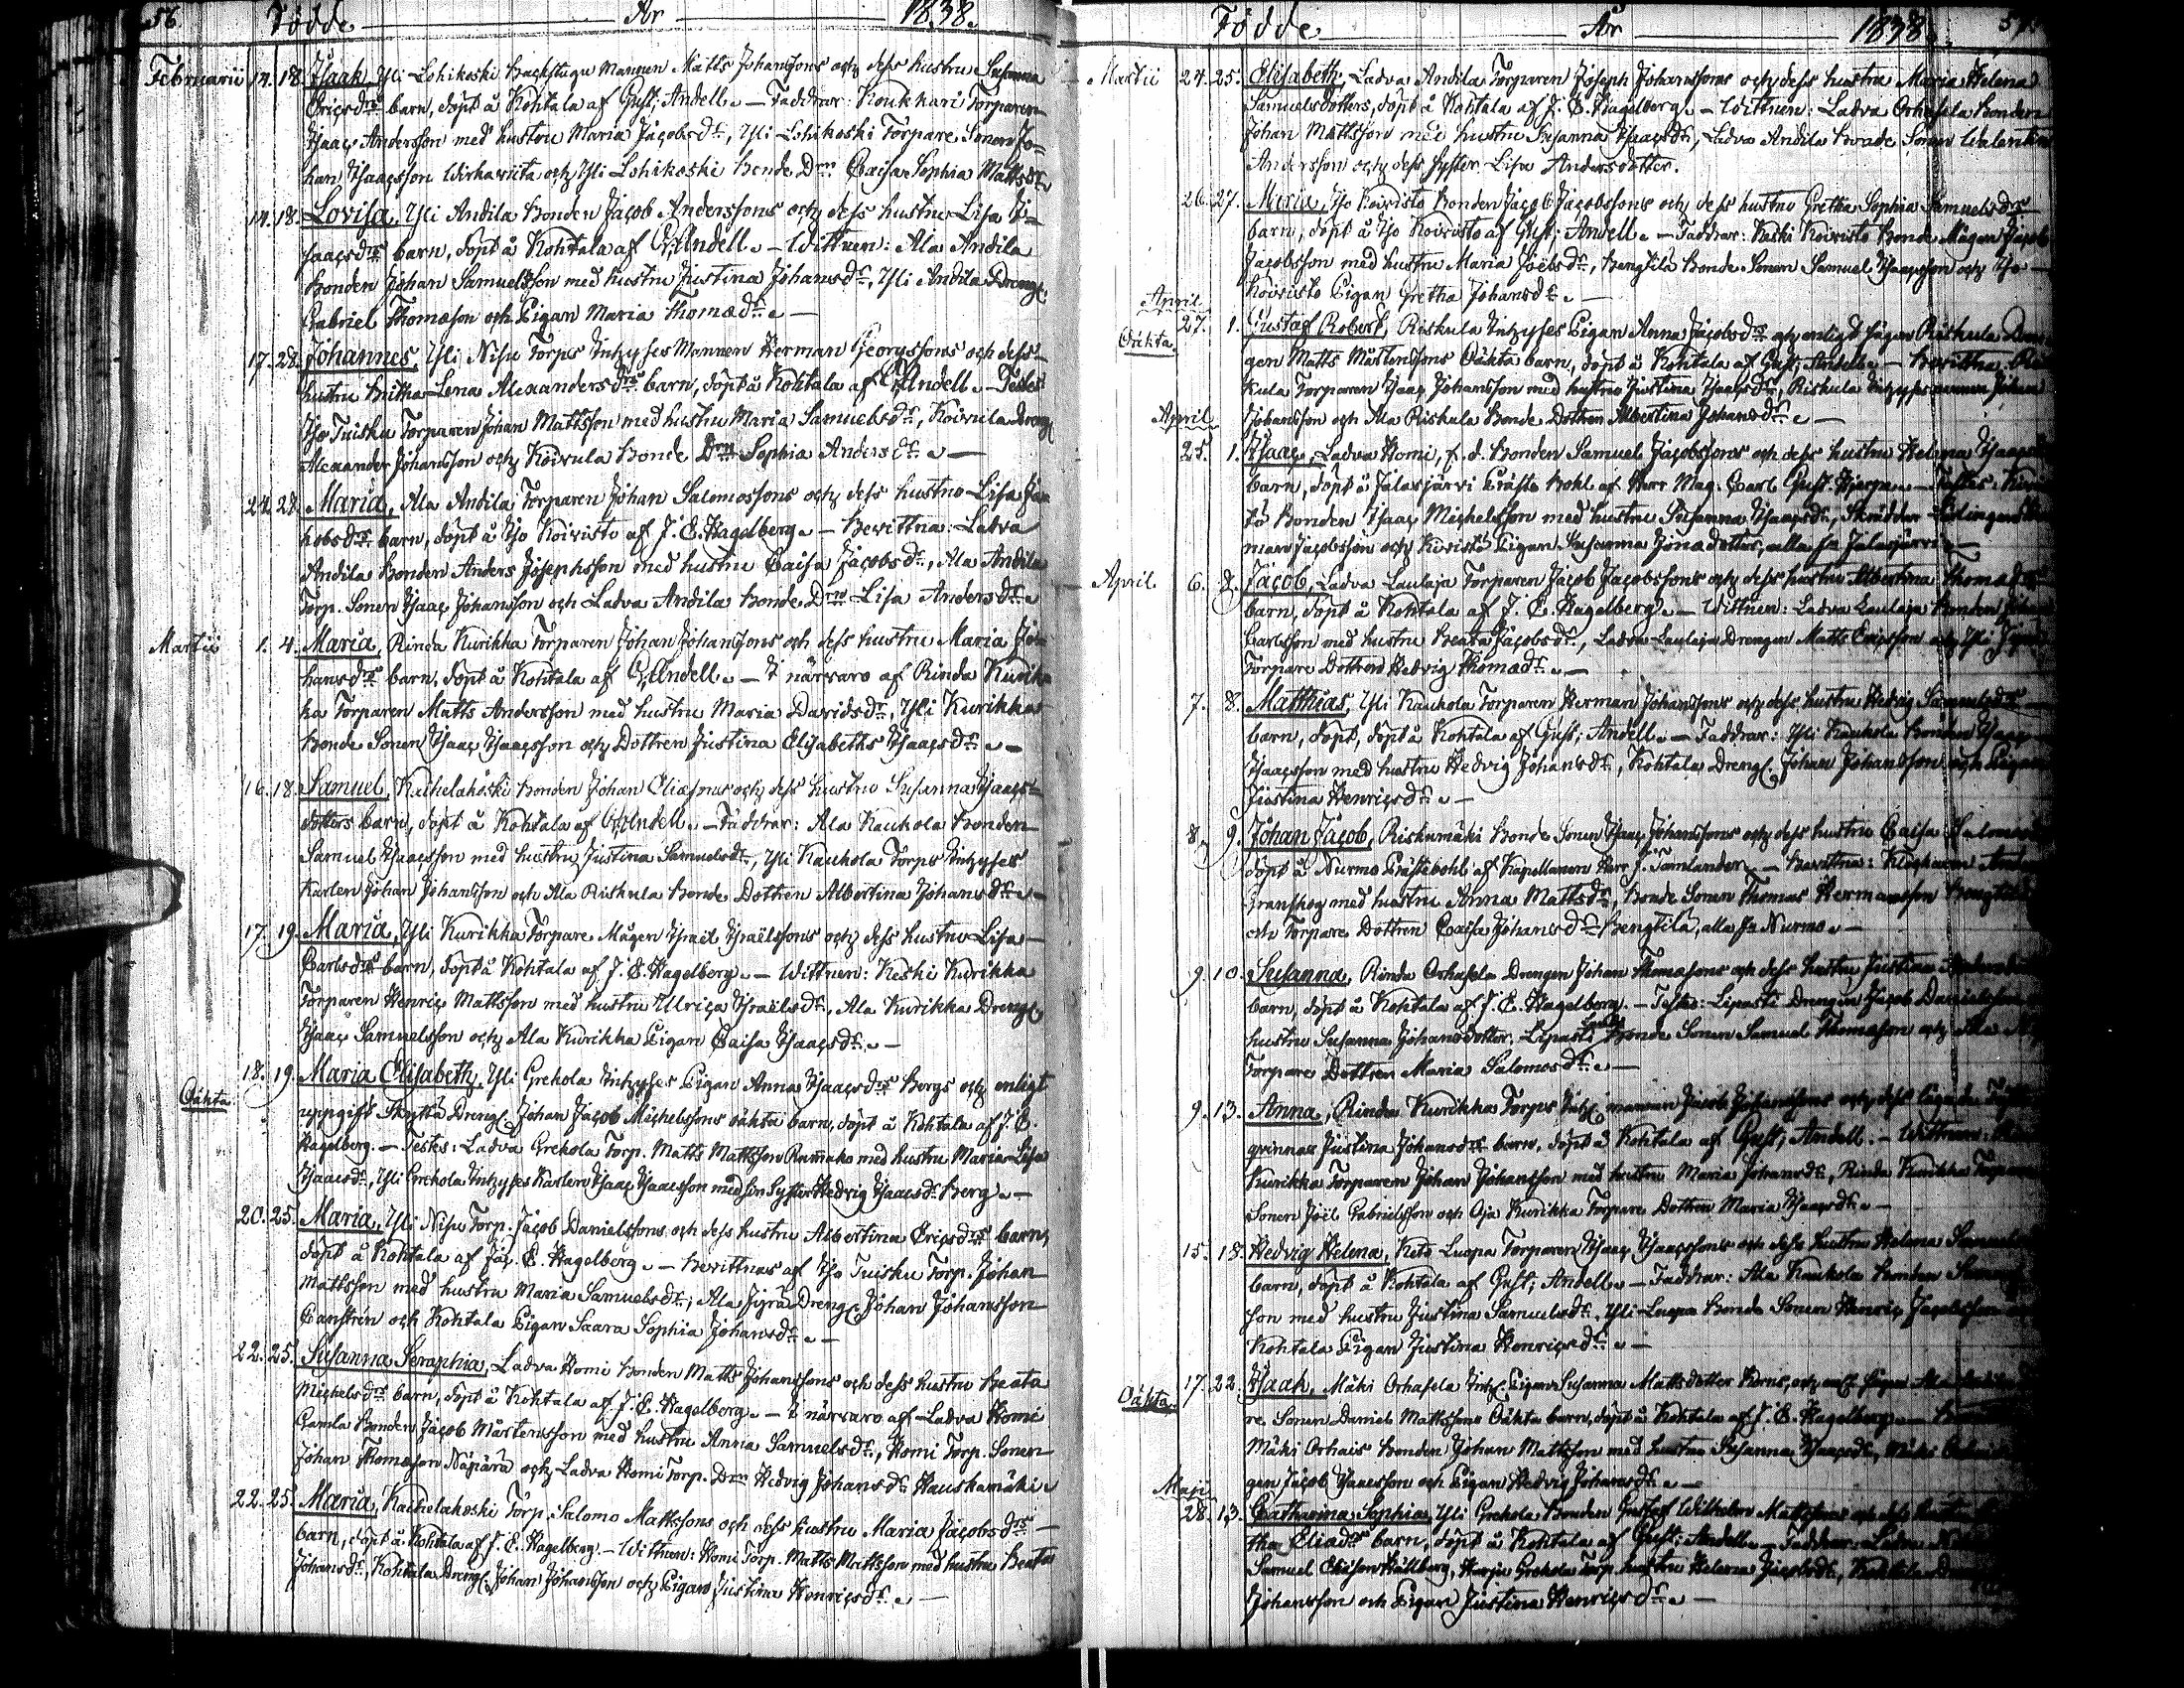 56. Födde År 1838.
Februarii 14. 18. Isaak, Yli Lohikoski Backstugu Mannen Matts Johanssons och dess hustru Susanna
Ericsdrs barn, döpt å Kohtala af Gust; Andell. — Faddrar: Koukkari Torparen
Isaac Andersson med hustru Maria Jacobsdr, Yli Lohikoski Torpare Sonen Jo-
han Isaacsson Wirkariita och Yli Lohikoski Bonde Drn Caisa Sophia Mattsdr
14. 18. Lovisa, Yli Andila Bonden Jacob Anderssons och dess hustru Lisa I-
saacsdrs barn, döpt å Kohtala af G. Andell. — Wittnen: Ala Andila
Bonden Johan Samuelsson med hustru Justina Johansdr, Yli Andila Dreng.
Gabriel Thomæson och Pigan Maria Thomædr. —
17. 28. Johannes, Yli Nisu Torps Inhyses Mannen Herman Georgssons och dess
hustru Britha Lena Alexandersdrs barn, döpt å Kohtala af G. Andell. — Testes
Iso Tuisku Torparen Johan Mattsson med hustru Maria Samuelsdr, Koivula Dreng
Alexander Johansson och Koivula Bonde Drn Sophia Andersdr. —
24. 28. Maria, Ala Andila Torparen Johan Salomossons och dess hustru Lisa Ja-
kobsdrs barn, döpt å Iso Koivisto af J. E. Hagelberg. — Bevittna: Ladva
Andila Bonden Anders Josephsson med hustru Caisa Jacobsdr, Ala Andila
Torp. Sonen Isaac Johansson och Ladva Andila Bonde Drn Lisa Andersdr.
Martii 1. 4. Maria, Rinda Kurikka Torparen Johan Johanssons och dess hustru Maria Jo-
hansdrs barn, döpt å Kohtala af G. Andell. — I närvaro af Rinda Kurik
ka Torparen Matts Andersson med hustru Maria Davidsdr, Yli Kurikka
Bonde Sonen Isaac Isaacsson och Dottren Justina Elisabeths Isaacsdr. —
16. 18. Samuel, Kaihelakoski Bonden Johan Eliæsons och dess hustru Susanna Isaacs-
dotters barn, döpt å Kohtala af G. Andell. — Faddrar: Ala Kaukola Bonden
Samuel Isaacsson med hustru Justina Samuelsdr, Yli Kaukola Torps Inhyses
Karlen Johan Johansson och Ala Riskula Bonde Dottren Albertina Johansdr. —
17. 19. Maria, Yli Kurikka Torpare Mågen Israel Israëlssons och dess hustru Lisa
Carlsdrs barn, döpt å Kohtala af J. E. Hagelberg. — Wittnen: Keski Kurikka
Torparen Henric Mattsson med hustru Ulrica Israëlsdr, Ala Kurikka Dreng
Isaac Samuelsson och Ala Kurikka Pigan Caisa Isaacsdr. —
Oäkta. 18. 19. Maria Elisabeth, Yli Grekola Inhyses Pigan Anna Isaacsdrs Bergs och enligt
uppgift Skyttä Dreng Johan Jacob Michelssons oäkta barn, döpt å Kohtala af J. E.
Hagelberg. — Testes: Ladva Grekola Torp. Matts Mattsson Rammako med hustru Maria Lisa
Isaacsdr, Yli Grekola Inhyses Karlen Isaac Isaacsson med sin Syster Hedvig Isaacsdr Berg. —
20. 25. Maria, Yli Nisu Torp. Jacob Danielssons och dess hustru Albertina Ericsdrs barn,
döpt å Kohtala af Jac. E. Hagelberg. — Bevittnas af Iso Tuisku Torp. Johan
Mattsson med hustru Maria Samuelsdr; Ala Jyrä Dreng Johan Johansson
Canstrén och Kohtala Pigan Saara Sophia Johansdr. —
22. 25. Susanna Seraphia, Ladva Homi Bonden Matts Johanssons och dess hustru Beata
Michelsdrs barn, döpt å Kohtala af J. E. Hagelberg. — I närvaro af Ladva Homi
Gamla Bonden Jacob Mårtensson med hustru Anna Samuelsdr, Homi Torp. Sonen
Johan Thomæson Näpärä och Ladva Homi Torp. Drn Hedvig Johansdr Hauskamäki.
22. 25. Maria, Kaihelakoski Torp. Salomo Mattssons och dess hustru Maria Jacobsdrs
barn, döpt å Kohtala af J. E. Hagelberg. — Wittnen: Homi Torp. Matts Mattsson med hustru Beata
Johansdr, Kohtala Dreng Johan Johansson och Pigan Justina Henricsdr. —
Födde År 1838. 57.
Martii 24. 25. Elisabeth, Ladva Andila Torparen Joseph Johanssons och dess hustru Maria Helena
Samuelsdotters, döpt å Kohtala af J. E. Hagelberg. — Wittnen: Ladva Orhafela Bonden
Johan Mattsson med hustru Susanna Isaacsdr, Ladva Andila Bonde Sonen Walentin
Andersson och dess syster Lisa Andersdotter.
26. 27. Maria, Iso Koivisto Bonden Jacob Jacobssons och dess hustru Gretha Sophia Samuelsdrs
barn, döpt å Iso Koivisto af Gust; Andell. — Faddrar: Keski Koivisto Bonde Mågen Jacob
Jacobsson med hustru Maria Joëlsdr, Bengtila Bonde Sonen Samuel Isaacsson och Iso
Koivisto Pigan Gretha Johansdr. —
April
Oäkta. 27. 1. Gustaf Robert, Riskula Inhyses Pigan Anna Jacobsdrs och enligt sägen Riskula Dren
gen Matts Mårtenssons Oäkta barn, döpt å Kohtala af Gust; Andell. — Bevittna: Ris
kula Torparen Isaac Johansson med hustru Justina Isaacsdr, Riskula Inhyses mannen Johan
Johansson och Ala Riskula Bonde Dottren Albertina Johansdr. —
April
25. 1. Isaac, Ladva Homi, f. d. Bonden Samuel Jacobssons och dess hustru Helena Isaacs
barn, döpt å Jalasjärvi Prästebohl af Herr Mag. Carl Gust.
Bonden Isaac Michelsson med hustru Susanna Isaacsdr, Skräddar
man Jacobsson och Pigan Susanna Jonædotter, alla fr Jalasjärvi. —
April 6. 8. Jacob, Ladva Laulaja Torparen Jacob Jacobssons och dess hustru Albertina Thomædrs
barn, döpt å Kohtala af J. E. Hagelberg. — Wittnen: Ladva Laulaja Bonden Johan
Carlsson med hustru Beata Jacobsdr, Ladva Laulaja Drengen Matts Ericsson och Yli
Torpare Dottren Hedvig Thomædr. —
7. 8. Matthias, Yli Kaukola Torparen Herman Johanssons och dess hustru Hedvig Samuelsdrs
barn, döpt, döpt å Kohtala af Gust; Andell. — Faddrar: Yli Kaukola Bonden Isaac
Isaacsson med hustru Hedvig Johansdr, Kohtala Dreng Johan Johansson och Pigan
Justina Henricsdr. —
8. 9. Johan Jacob, Riskumäki Bonde Sonen Isaac Johanssons och dess hustru Caisa Salomos
döpt å Nurmo Prästebohl af Kapellanen Herr J. Tamlander. — Bevittna: Klockaren
Granskog med hustru Anna Mattsdr, Bonde Sonen Thomas Hermansson Bengtila
och Torpare Dottren Caisa Johansdr Bengtila, alla fr Nurmo. —
9. 10. Susanna, Rinda Orhafela Drengen Johan Thomæsons och dess hustru Justina Anders
barn, döpt å Kohtala af J. E. Hagelberg. — Testes: Lipasti Drengen Jacob Danielsson
hustru Susanna Johansdotter, Lipasti Bonde Sonen Samuel Thomæson och Ala
Torpare Dottren Maria Salomosdr. —
9. 13. Anna, Rinda Kurikka Torps Inh. mannen Jacob Johanssons och dess
qvinnas Justina Johansdrs barn, döpt å Kohtala af Gust; Andell. — Wittnen:
Kurikka Torparen Johan Johansson med hustru Maria Johansdr, Rinda Kurikka Torpare
Sonen Joël Gabrielsson och Oja Kurikka Torpare Dottren Maria Isaacsdr. —
15. 18. Hedvig Helena, Keto Luopa Torparen Isaac Isaacssons och dess hustru Helena Samuels
barn, döpt å Kohtala af Gust; Andell. — Faddrar: Ala Kaukola Bonden Samuel
son med hustru Justina Samuelsdr, Yli Luopa Bonde Sonen Henric Jacobsson
Kohtala Pigan Justina Henricsdr. —
Oäkta. 17. 22. Isaak, Mäki Orhafela Inh. Pigan Susanna Mattsdotter Korns, och enl. sägen
re Sonen Daniel Mattssons Oäkta barn, döpt å Kohtala af J. E. Hagelberg. —
Mäki Orhais Bonden Johan Mattsson med hustru Susanna Isaacsdr, Mäki
gen Jacob Isaacsson och Pigan Hedvig Johansdr. —
Maji
28. 13. Catharina Sophia, Yli Grekola Bonden Gustaf Wilhelm Mattssons och dess hustru
tha Eliædrs barn, döpt å Kohtala af Gust; Andell. — Faddrar: Ladva
Samuel Eliæson Hällberg, Harju Grekola Torp. hustru Helena Jacobsdr, Kohtala
Johansson och Pigan Justina Henricsdr. —